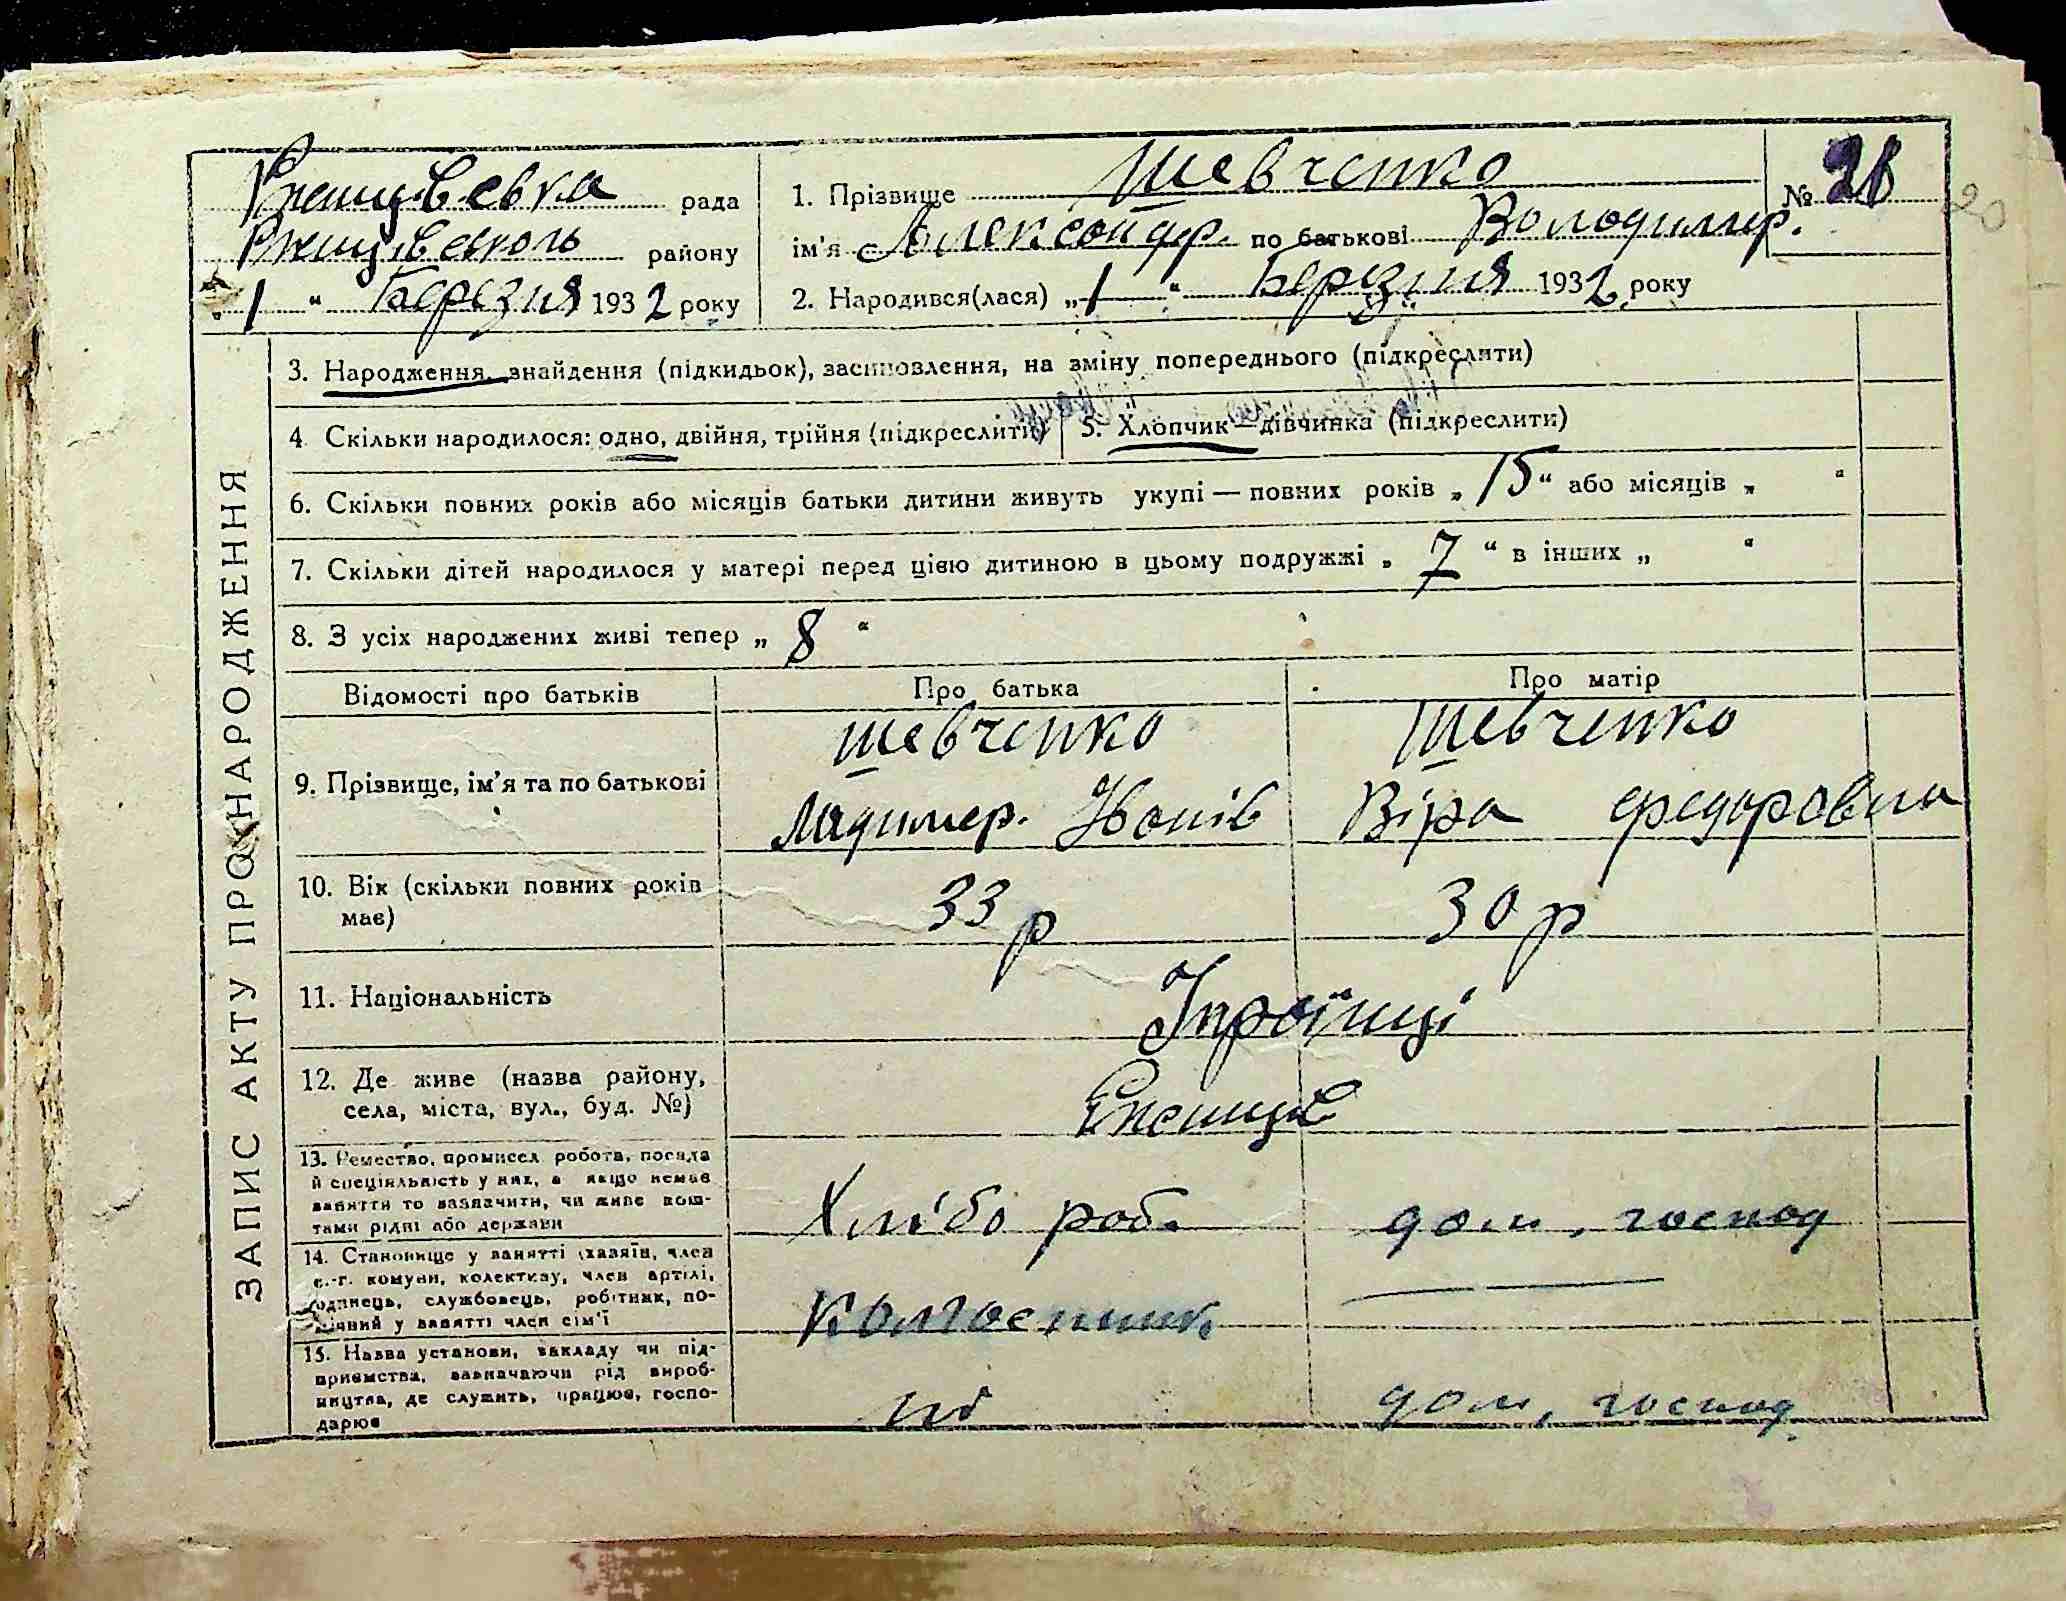 рада
1. Прізвище Шевченко
№
20
району
ім'я Александр. по батькові Володимер.
1 " Березня 1932 року
2. Народився(лася) „1" Березня 1932 року
ЗАПИС АКТУ ПРО НАРОДЖЕННЯ
3. Народження, знайдення (підкидьок), засиновлення, на зміну попереднього (підкреслити)
4. Скільки народилося: одно, двійня, трійня (підкреслити)
5. Хлопчик — дівчинка (підкреслити)
6. Скільки повних років або місяців батьки дитини живуть укупі — повних років „15" або місяців „ "
7. Скільки дітей народилося у матері перед цією дитиною в цьому подружжі „7" в інших „ "
8. З усіх народжених живі тепер „8"
Відомості про батьків
Про батька
Про матір
9. Прізвище, ім'я та по батькові
Шевченко
Ладимер. Іванів
Шевченко
Віра Федоровна
10. Вік (скільки повних років
має)
33 р
30 р
11. Національність
12. Де живе (назва району,
села, міста, вул., буд. №)
13. Ремество, промисел, робота, посада
й спеціяльність у них, а якщо немає
заняття то зазначити, чи живе кош-
тами рідні або держави
Хлібороб.
дом, господ
14. Становище у занятті (хазяїн, член
с.-г. комуни, колективу, член артілі,
одинець, службовець, робітник, по-
у занятті член сім'ї
Колгоспник.
15. Назва установи, закладу чи під-
приємства, зазначаючи рід вироб-
ництва, де служить, працює, госпо-
дарює
дом, господ.